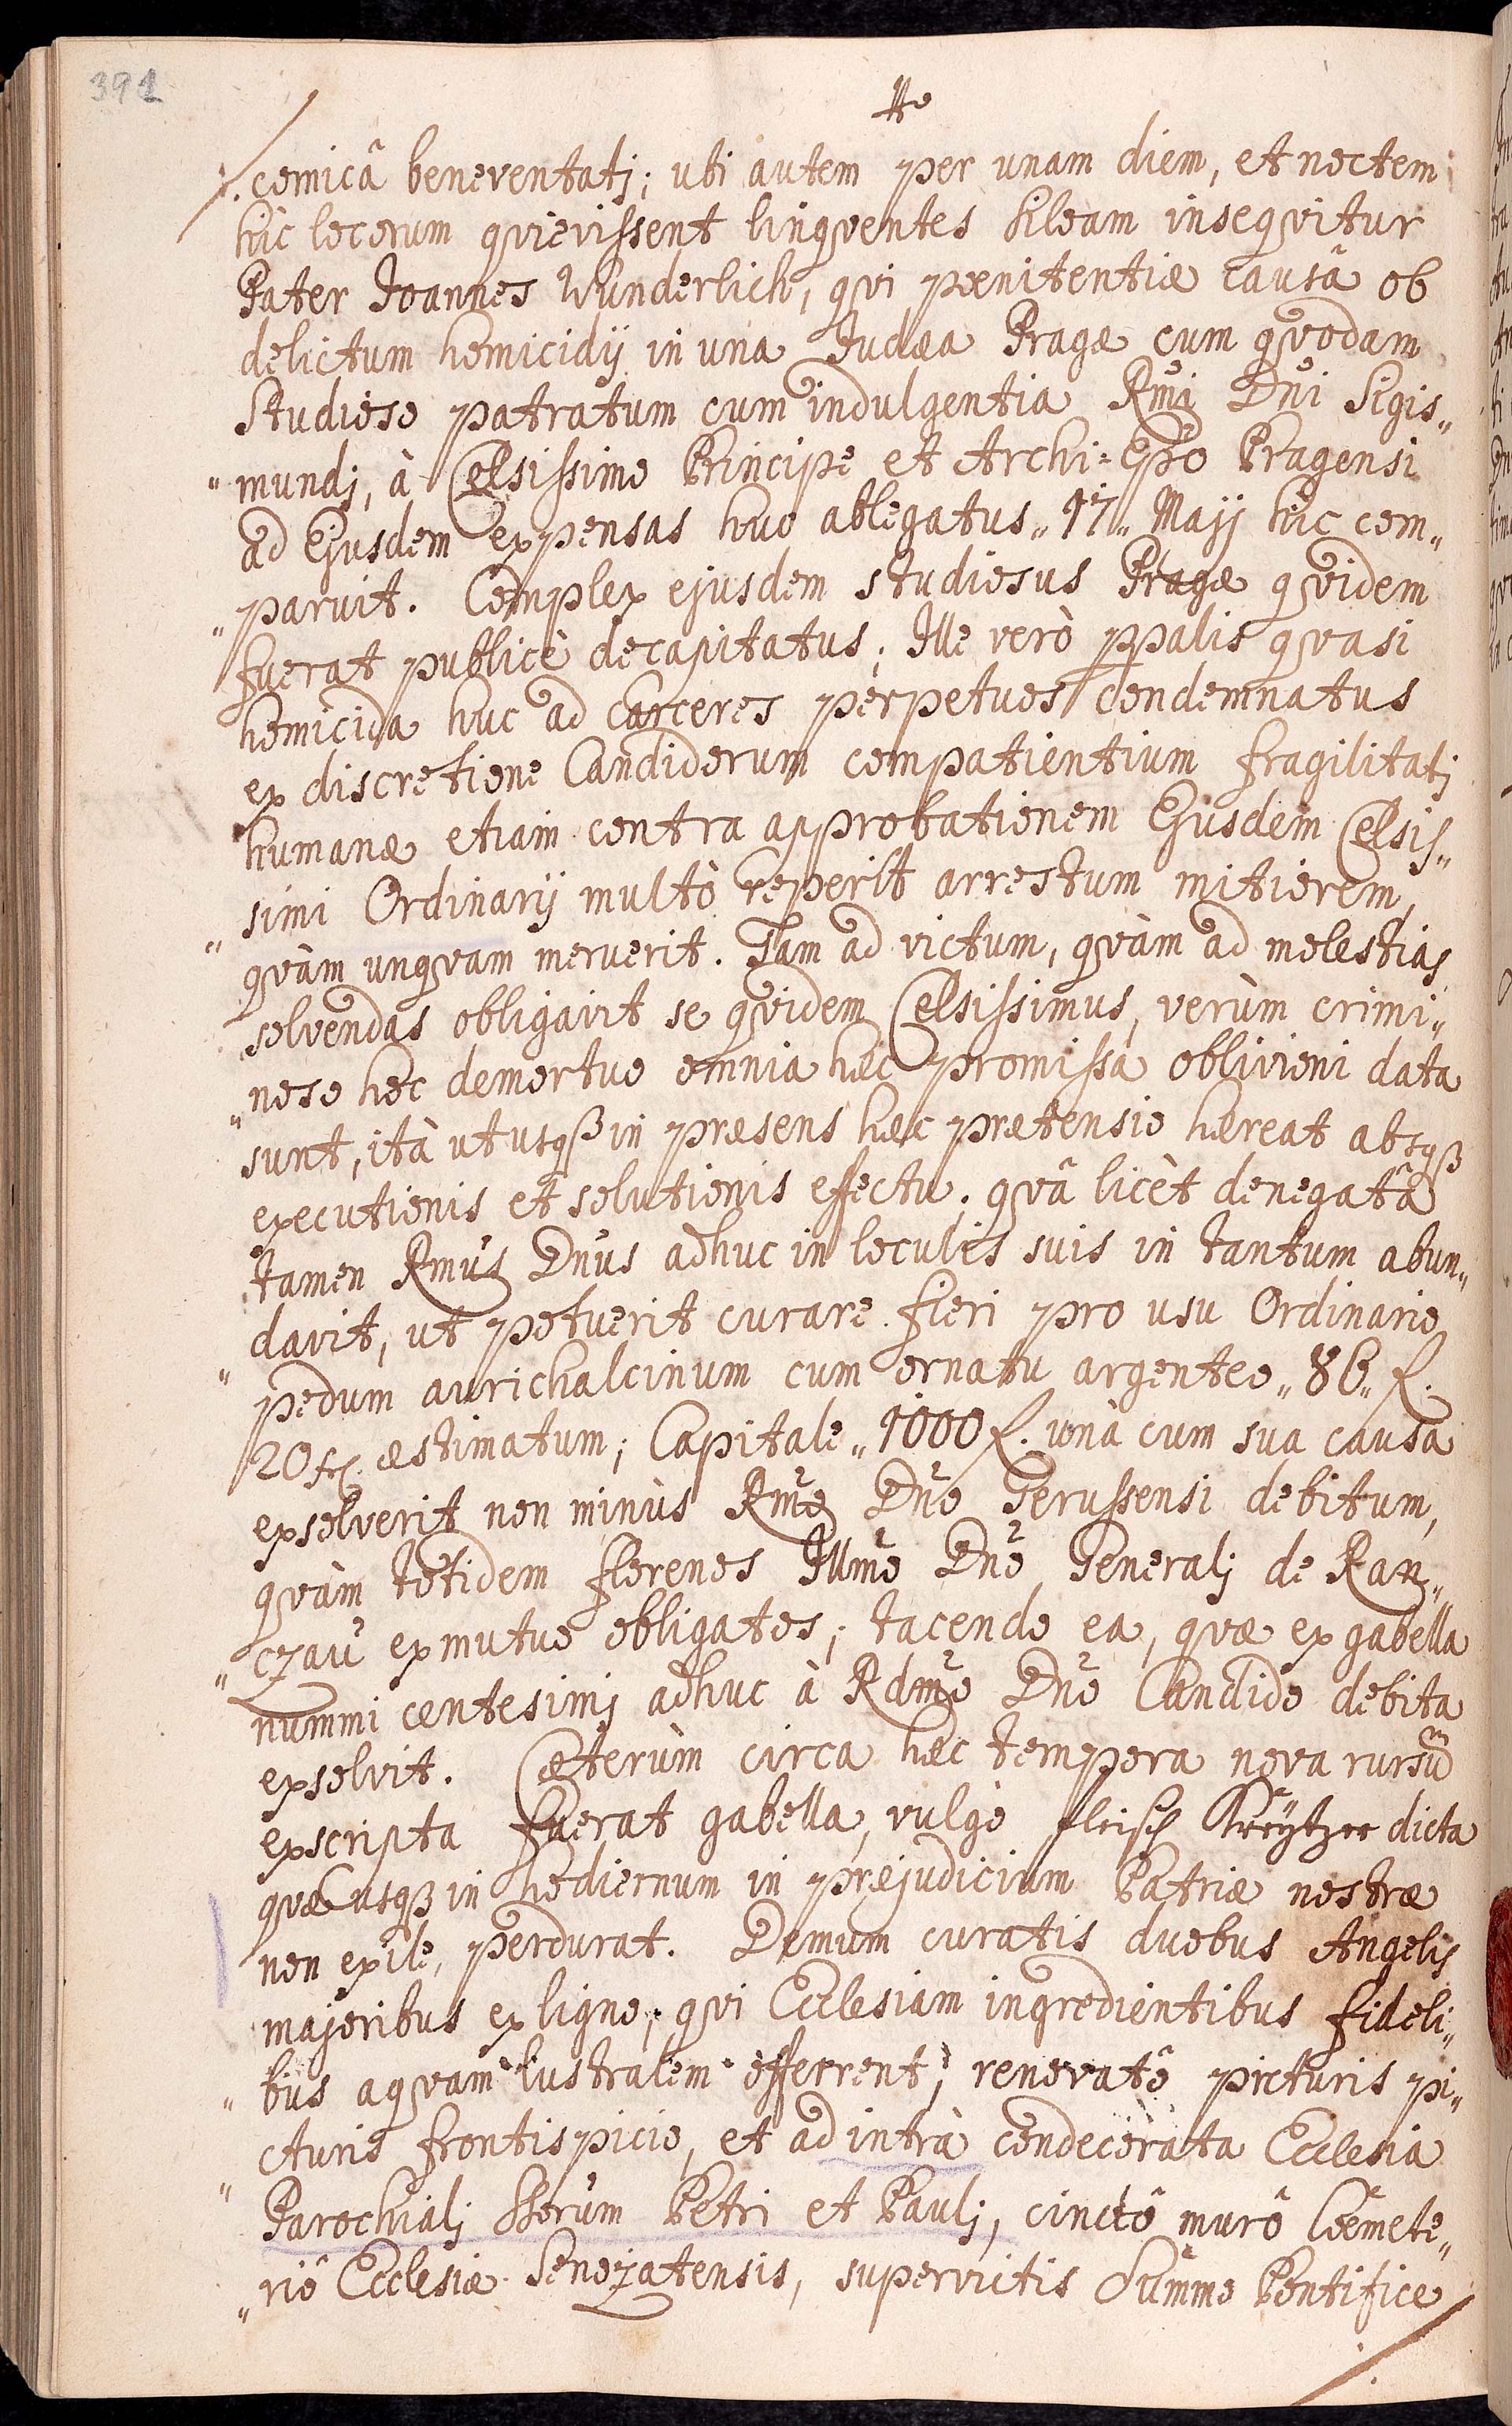 391
./. comicâ beneventatj; uti autem per unam diem, et noctem
hîc locorum qvievissent linqventes Siloam inseqvitur
Pater Joannes Wunderlich, qvi pœnitentiæ causâ ob
delictum homicidÿ in una Judæa Pragæ cum qvodam
Studioso patratum cum indulgentia Rmi Dni Sigis„
„mundj, à Celsissimo Principe et Archi-Epo Pragensi
ad Ejusdem expensas huc ablegatus „17„ Maji hîc com„
„paruit. Complex ejusdem studiosus Pragæ qvidem
fuerat publicè decapitatus; Ille verò ppalis qvasi
homicida huc ad Carceres perpetuos condemnatus
ex discretione Candidorum compatientium fragilitatj
humanæ etiam contra approbationem Ejusdem Celsis„
„simi Ordinarÿ multò reperit arrestum mitiorem,
qvàm unqvam meruerit. Tam ad victum, qvàm ad molestias
solvendas obligavit se qvidem Celsissimus, verùm crimi„
„noso hoc demortuo omnia hæc promissa oblivioni data
sunt, ità ut usqß in præsens hæc prætensio hæreat absqß
executionis et solutionis effectu; qvâ licèt denegatâ
tamen Rmus Dnus adhuc in loculis suis in tantum abun„
„davit, ut potuerit curare fieri pro usu Ordinario
pedum aurichalcinum cum ornatu argenteo „86„ f.
20 xr. æstimatum; Capitale „1000 f. unà cum sua causa
exsolverit non minùs Rmo Dno Gerussensi debitum,
qvàm totidem florenos Illmo Dno Generalj de Ran„
„czau ex mutuo obligatos; tacendo ea, qvæ ex gabella
nummi centesimj adhuc à Rdmo Dno Candido debita
exsolvit. Cæterùm circa hæc tempora nova rursũm
exscripta fuerat gabella, vulgò Fleisch Kreÿtzer dicta
qvæ usqß in hodiernum in præjudicium Patriæ nostræ
non exile, perdurat. Demum curatis duobus Angelis
majoribus ex ligno, qvi Ecclesiam ingredientibus fideli„
„bus aqvam lustralem offerrent; renovatô picturis pi„
„cturis frontispicio, et ad intrà condecorata Ecclesia
Parochialj SSorum Petri et Paulj, cinctô murô Cœmete„
„riô Ecclesiæ Senozatensis, supervictis Summo Pontifice ./.